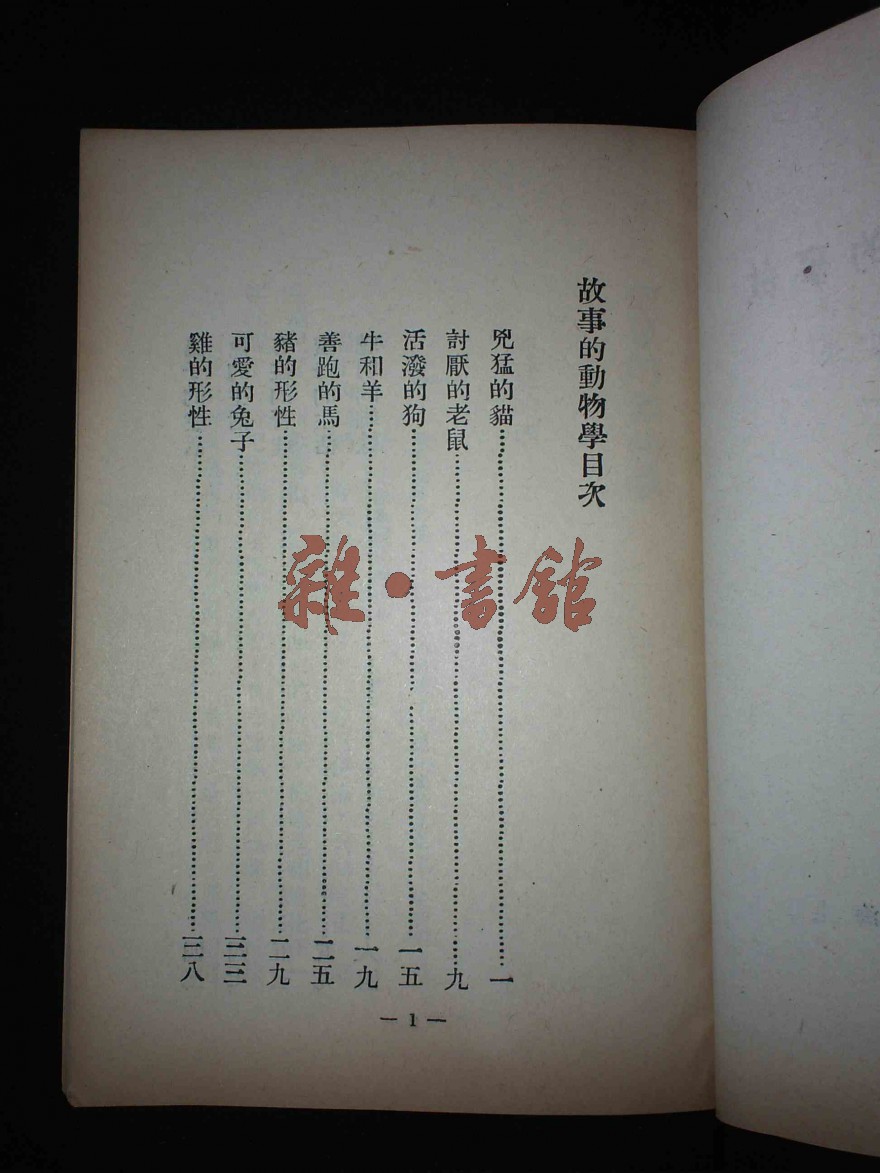 故事的動物學目次
兇猛的貓……一
討厭的老鼠……九
活潑的狗……一五
牛和羊……一九
善跑的馬……二五
豬的形性……二九
可愛的兔子……三三
雞的形性……三八
— 1 —
雜·書館